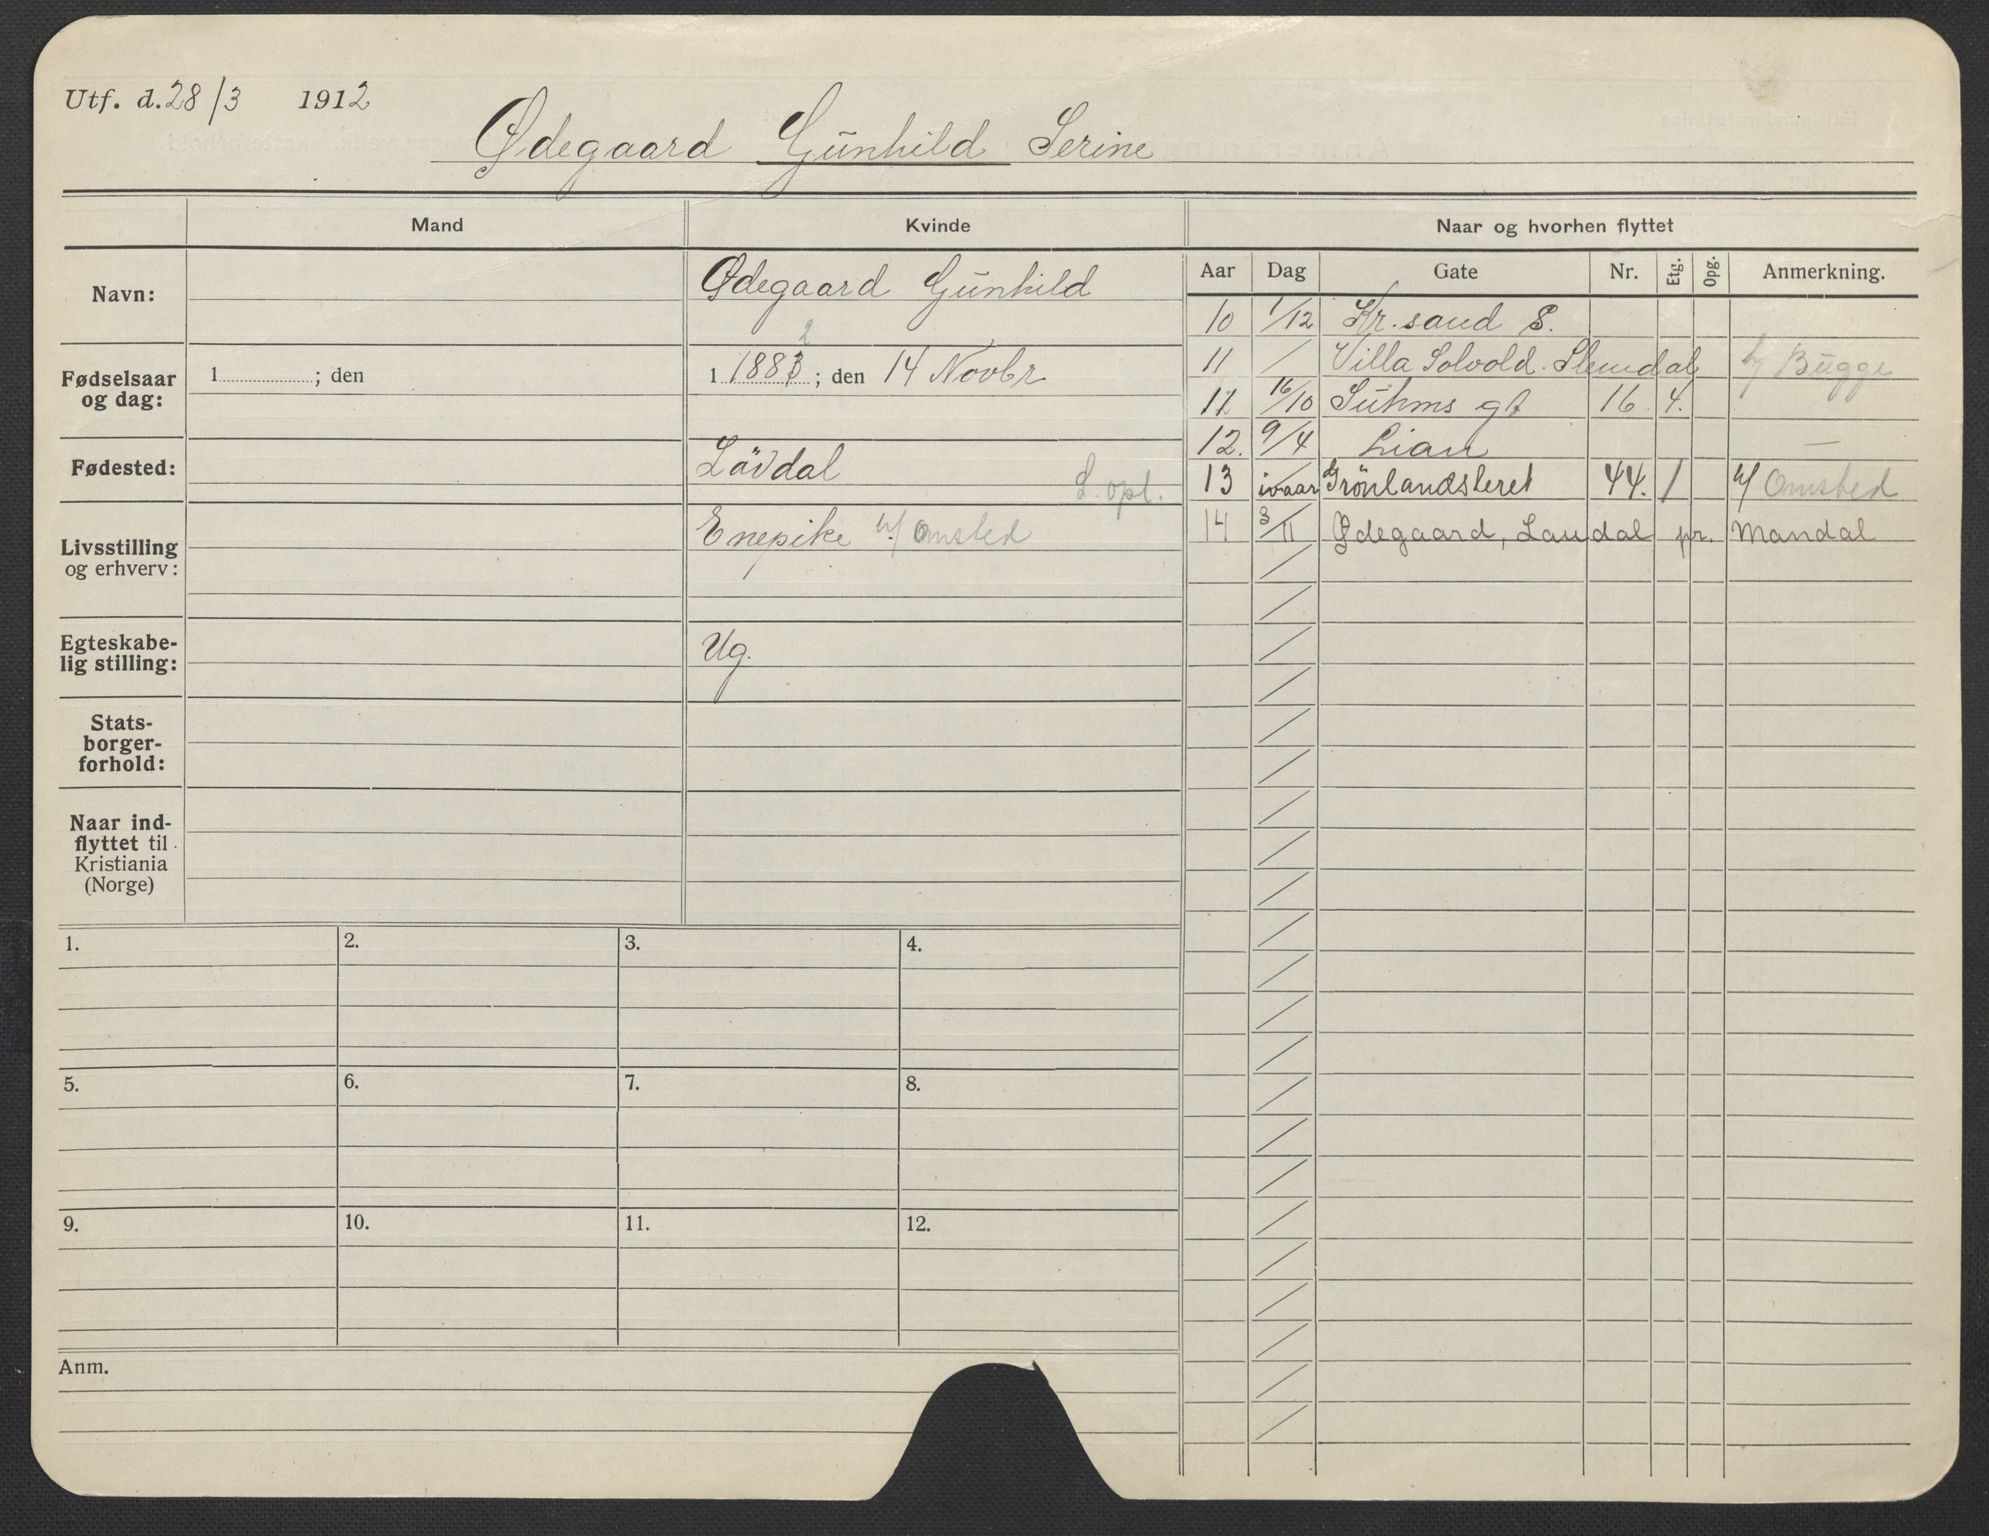 Utf. d. 28/3 1912
Ødegaard Gunhild Serine
Mand Kvinde Naar og hvorhen flyttet
Aar Dag Gate Nr. Etg. Opg. Anmerkning.
Navn: Ødegaard Gunhild
Fødselsaar og dag: 1 ; den 1 1883 2 ; den 14 Novbr
Fødested: Lövdal L. opl.
Livsstilling og erhverv: Enepike h/ Omsted
Egteskabe-
lig stilling: Ug.
Stats-
borger-
forhold:
Naar ind-
flyttet til
Kristiania
(Norge)
10 1/12 Kr. sand S.
11 / Villa Solvold. Slemdal h/ Bugge
11 16/10 Suhms gt 16 4.
12. 9/4 Lian —
13 ivaar Grönlandsleret 44. 1 h/ Omsted
14 3/11 Ødegaard, Laudal pr. Mandal
1. 2. 3. 4.
5. 6. 7. 8.
9. 10. 11. 12.
Anm.